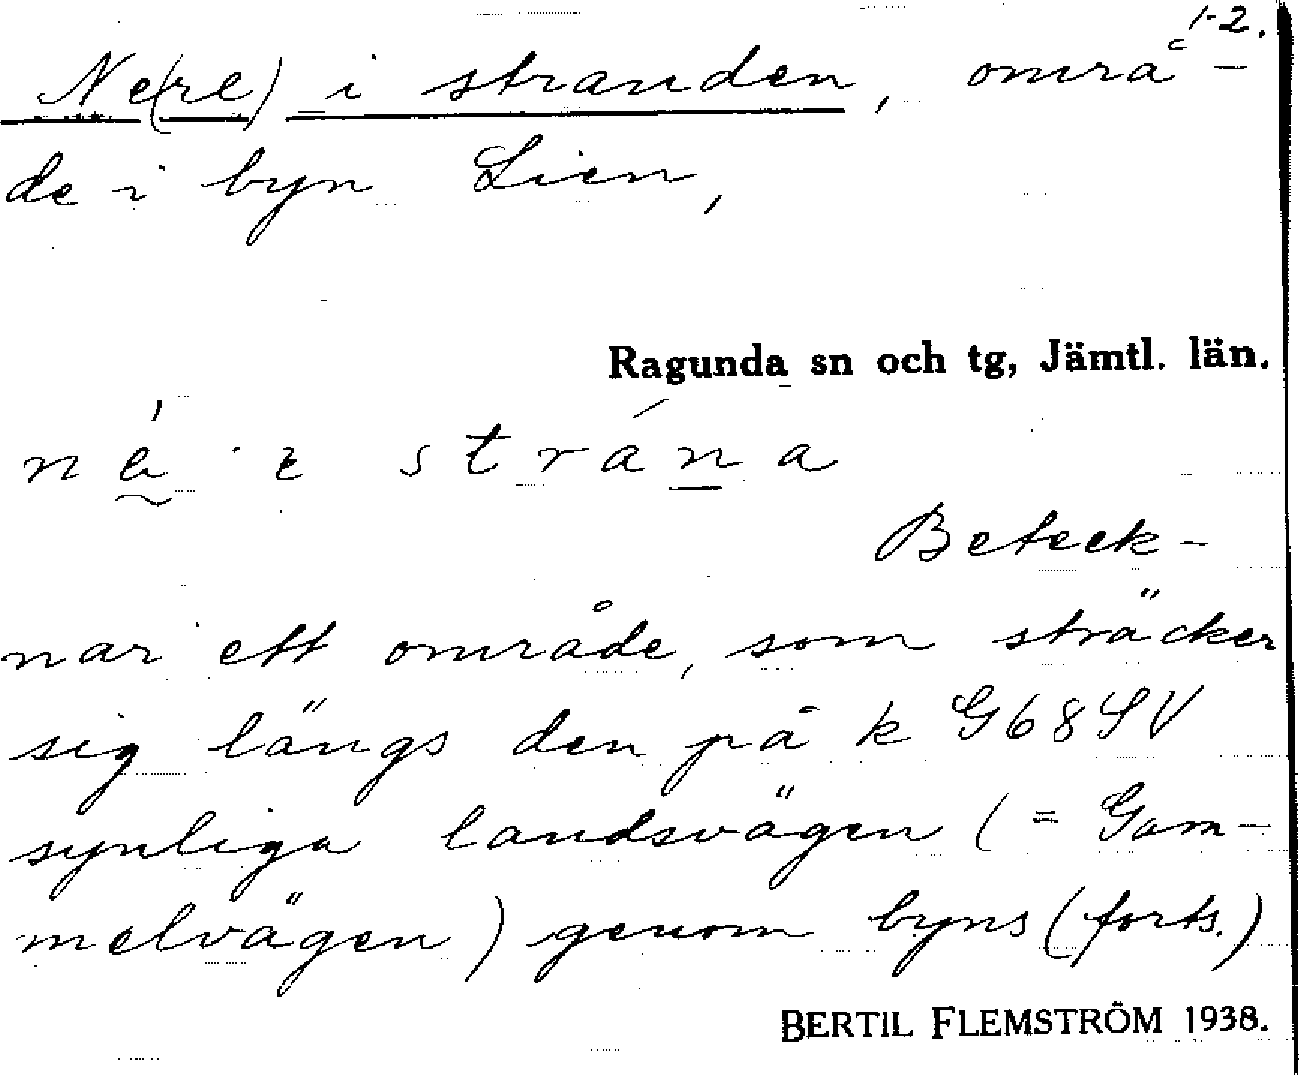 1-2.
Ne(re) i stranden, områ-
de i byn Lien,
Ragunda sn och tg, Jämtl. län.
strána
Beteck-
nar ett område, som sträcker
sig längs den på k G68SV
synliga landsvägen (= Gam-
melvägen) genom byns (forts.)
BERTIL FLEMSTRÖM 1938.